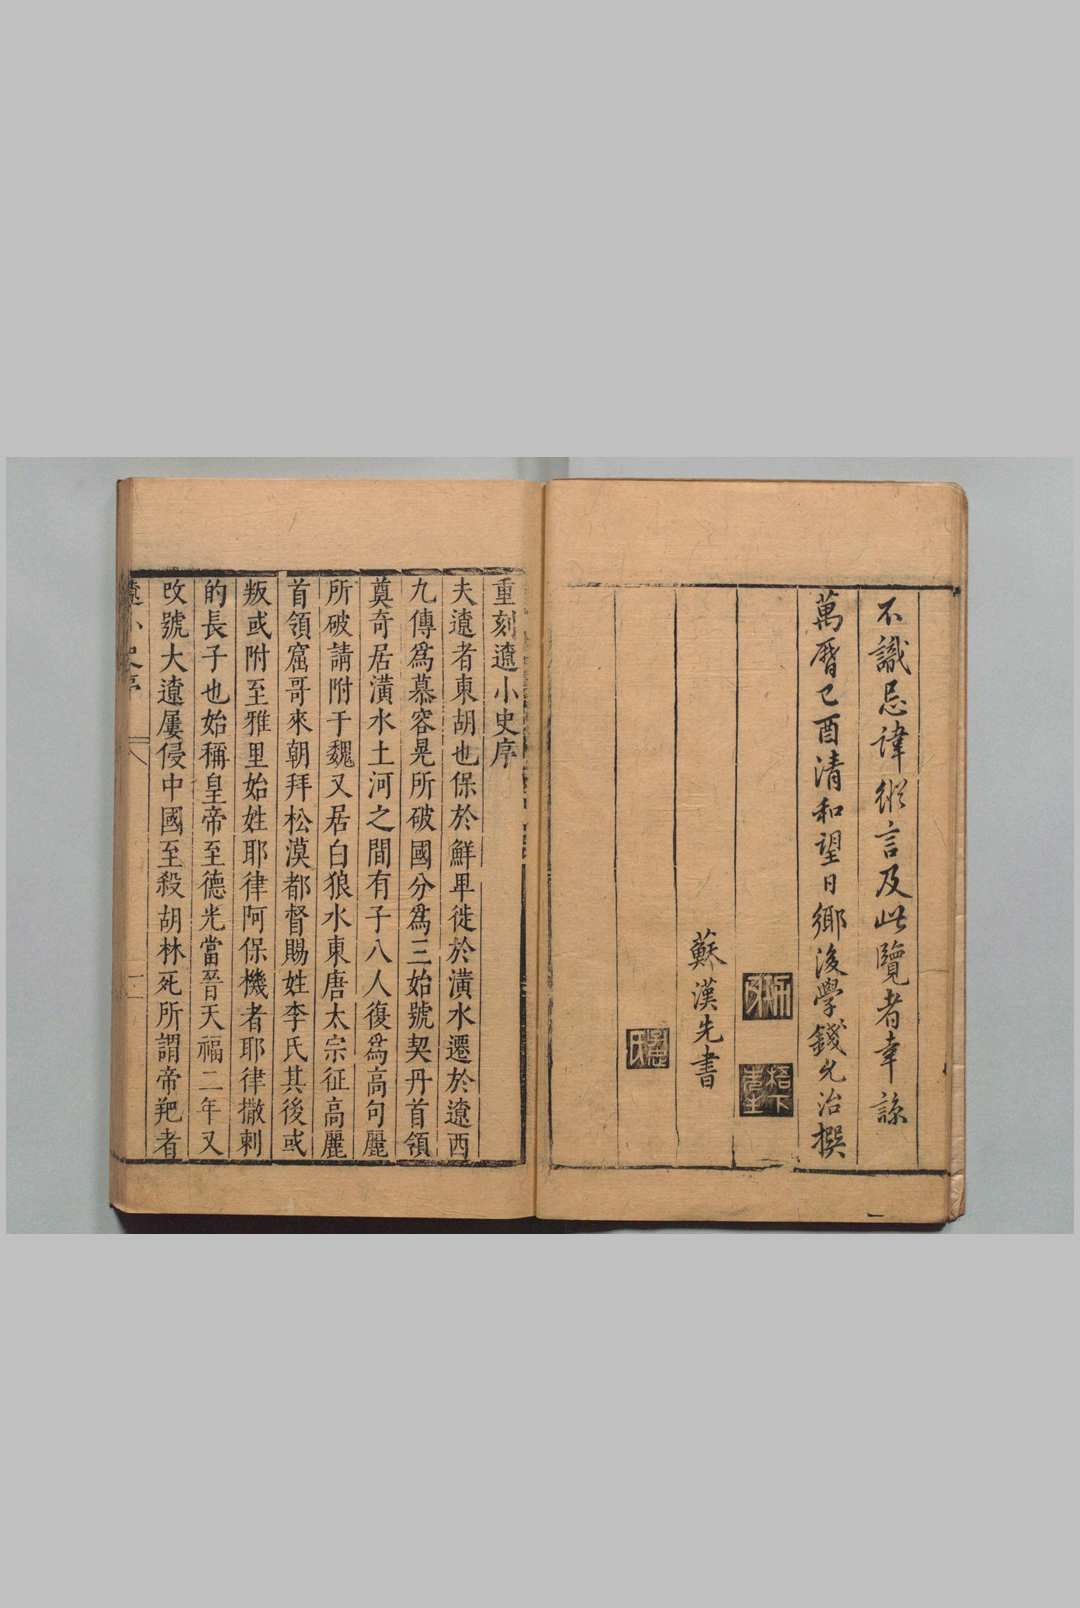 不識忌諱縱言及此覽者幸諒
萬曆己酉清和望日鄉後學錢允治撰
梧下先生
蘇漢先書
重刻遼小史序
夫遼者東胡也保於鮮卑徙於潢水遷於遼西
九傳爲慕容晃所破國分爲三始號契丹首領
奠奇居潢水土河之間有子八人復爲高句麗
所破請附于魏又居白狼水東唐太宗征高麗
首領窟哥來朝拜松漠都督賜姓李氏其後或
叛或附至雅里始姓耶律阿保機者耶律撒剌
的長子也始稱皇帝至德光當晉天福二年又
改號大遼屢侵中國至殺胡林死所謂帝羓者
遼小史序